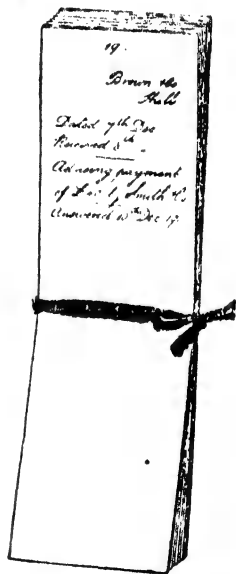 19.
Brown & Co
Hull
Dated 7th Dec
Received 8th "
Advising payment
of by Smith & Co
Answered 10th Dec 19.